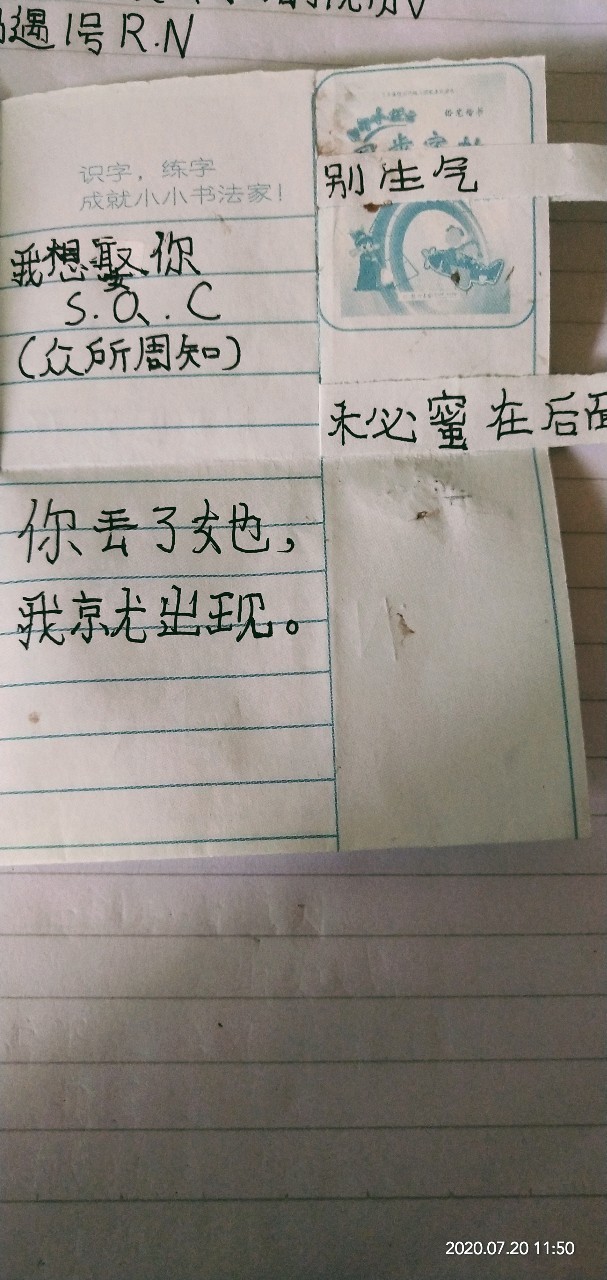 遇1号R.N
识字，练字
成就小小书法家！
别生气
我想娶你
S.O.C
(众所周知)
未必蜜在后面
你丢了她，
我就出现。
2020.07.20 11:50